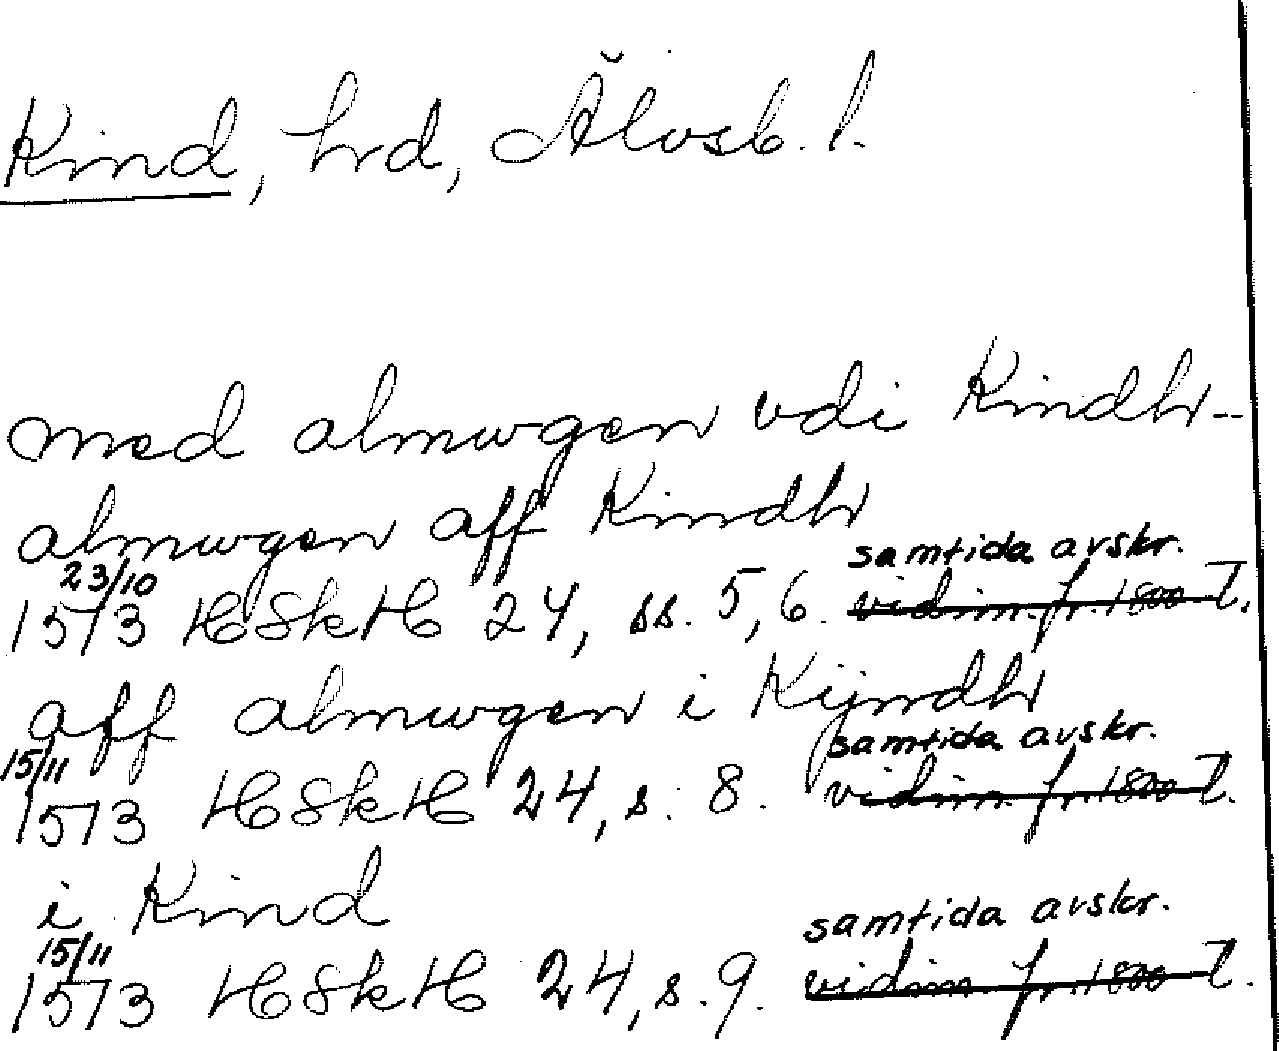 Kind, hrd, Älvsb. l.
med almwgen vdi Kindh-
almwgen aff Kindh
samtida avskr.
23/10
1573 HSkH 24, ss. 5, 6. vidim. fr. 1800 t.
aff almwgen i Kijndh
samtida avskr.
15/11
1573 HSkH 24, s. 8. vidim. fr. 1800 t.
i Kind
samtida avskr.
15/11
1573 HSkH 24, s. 9. vidim. fr. 1800 t.